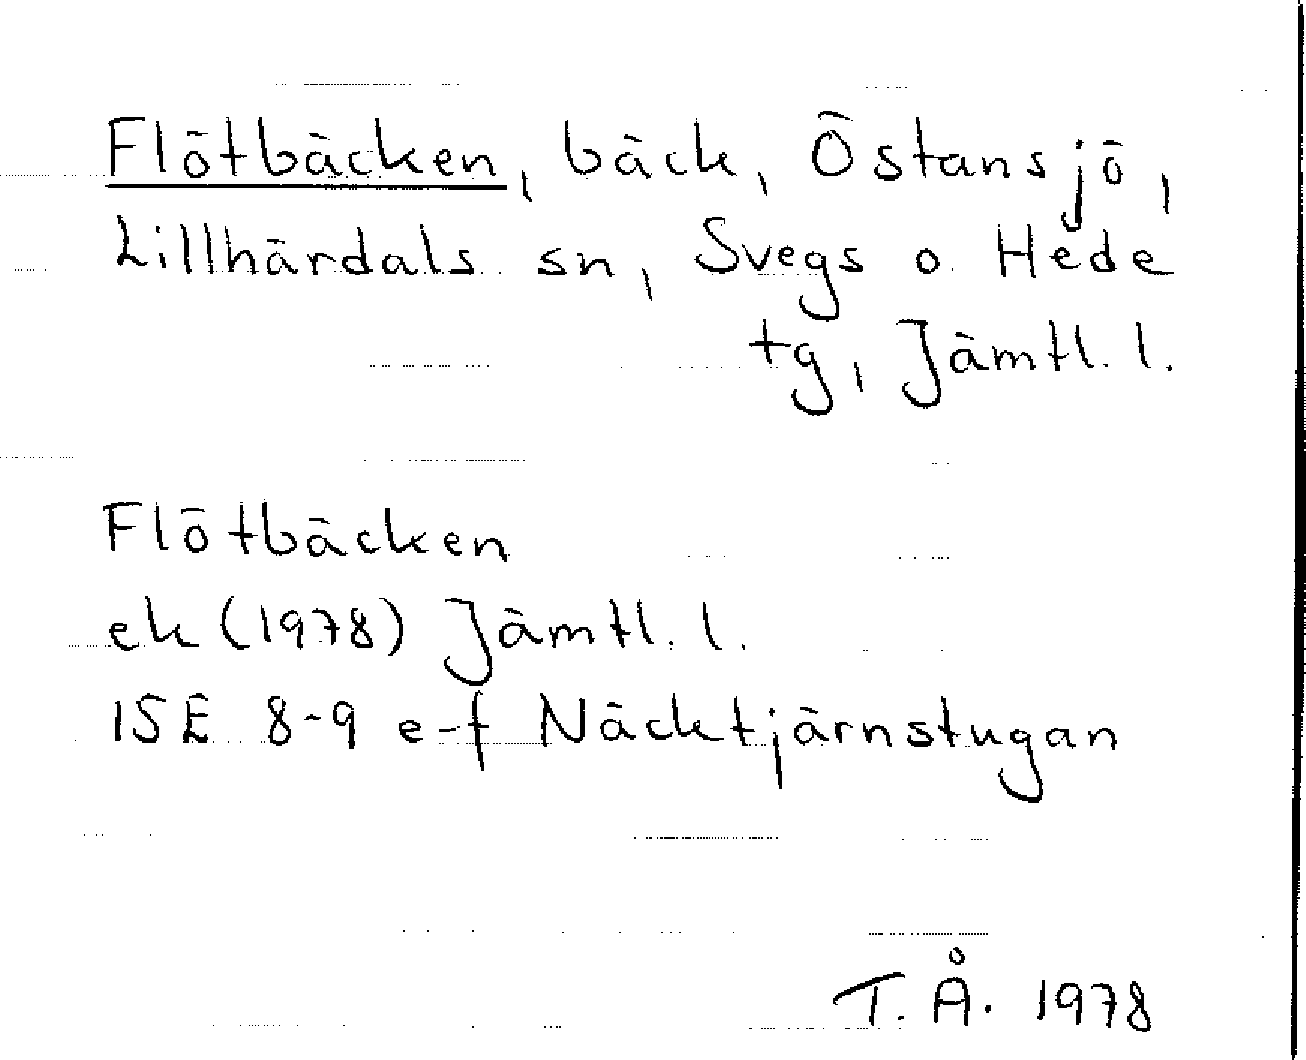 Flötbäcken, bäck, Östansjö,
Lillhärdals sn, Svegs o Hede
tg, Jämtl. l.
Flötbäcken
ek (1978) Jämtl. l.
15E 8-9 e-f Näcktjärnstugan
T. Å. 1978